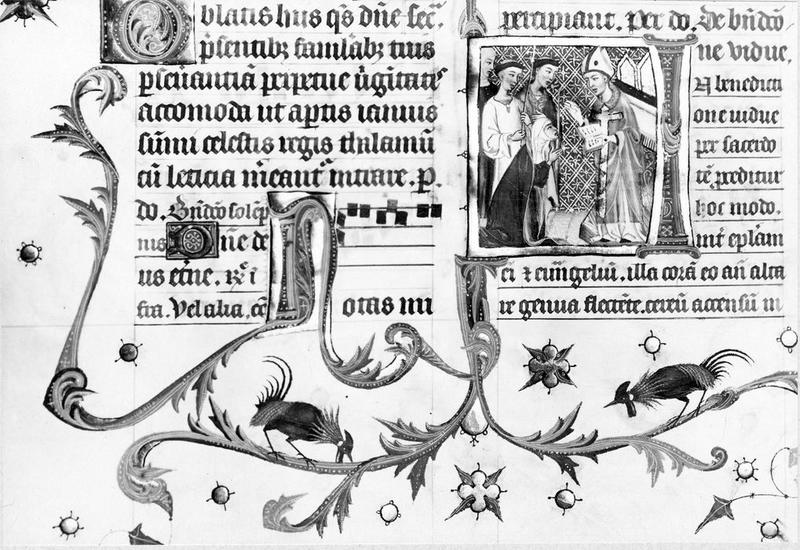 Oblatis hiis qs dñe fec.
p̃sentibꝫ famulabꝫ tuis
ꝑseuerantiā perpetue ũgitatis
accomoda ut aptis ianuis
sūmi celestis regis thalamū
cū leticia mereant̃ intrare. P.
do.
nis Dñe de
us etñe.
fra. Vel alia,
otas mi
percipiant. Per do. De bñdcō
ne vidue,
benedicti
one uidue
per sacerdo
tē preditur
hoc modo.
int̃ ep̃lam
ci ⁊ euu̅ngeliū. illa corā eo añ alta
re genua flectēte. cereū accensū in